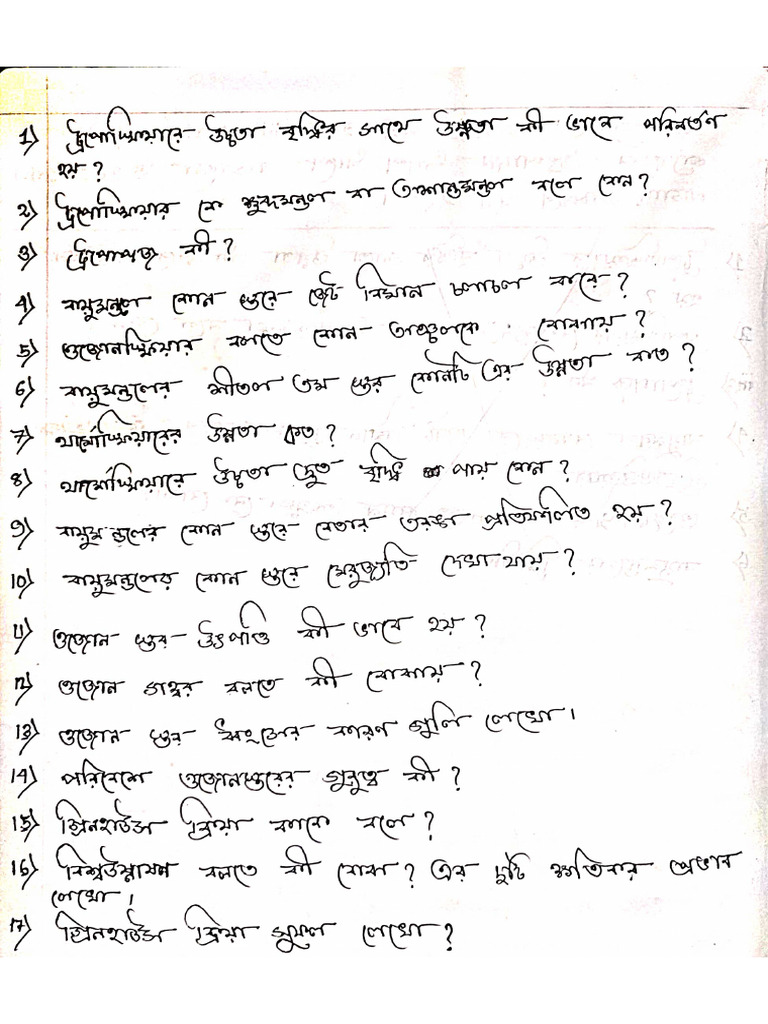 1) ট্রপোস্ফিয়ারে উচ্চতা বৃদ্ধির সাথে উষ্ণতা কী ভাবে পরিবর্তণ
হয় ?
2) ট্রপোস্ফিয়ার কে ক্ষুব্ধমন্ডল বা অশান্তমন্ডল বলে কেন ?
3) ট্রপোপজ কী ?
4) বায়ুমন্ডল কোন স্তরে জেট বিমান চলাচল করে ?
5) ওজোনস্ফিয়ার বলতে কোন অঞ্চলকে বোঝায় ?
6) বায়ুমন্ডলের শীতল তম স্তর কোনটি এর উষ্ণতা কত ?
7) থার্মোস্ফিয়ারের উষ্ণতা কত ?
8) থার্মোস্ফিয়ারে উচ্চতা দ্রুত বৃদ্ধি পায় কেন ?
9) বায়ুমন্ডলের কোন স্তরে বেতার তরঙ্গ প্রতিফলিত হয় ?
10) বায়ুমন্ডলের কোন স্তরে মেরুজ্যোতি দেখা যায় ?
11) ওজোন স্তর উৎপত্তি কী ভাবে হয় ?
12) ওজোন গহ্বর বলতে কী বোঝায় ?
13) ওজোন স্তর ধ্বংসের কারণ গুলি লেখো।
14) পরিবেশে ওজোনস্তরের গুরুত্ব কী ?
15) গ্রিনহাউস ক্রিয়া কাকে বলে ?
16) বিশ্বউষ্ণায়ন বলতে কী বোঝা ? এর দুটি ক্ষতিকার প্রভাব
লেখো।
17) গ্রিনহাউস ক্রিয়া সুফল লেখো ?